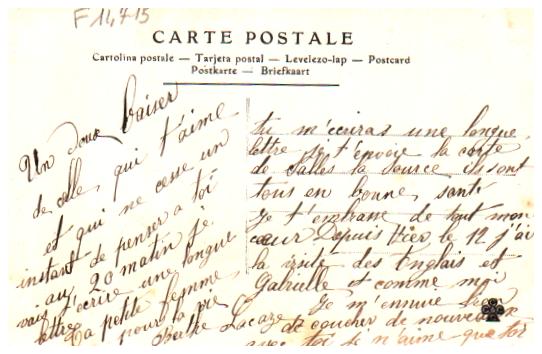 F 11,7-15
CARTE POSTALE
Cartolina postale — Tarjeta postal — Levelezo-lap — Postcard
Postkarte — Briefkaart
Un doux baiser
de celle, qui t'aime
et qui ne cesse un
instant de penser a toi
20 matin je
vais t'écrire une longue
lettre
Ta petite femme
pour la vie
Berthe Lacaze
tu m'ecriras une longue
lettre je t'envoie la carte
de Salles la Source ils sont
tous en bonne santé
Je t'embrasse de tout mon
cœur Depuis Hier le 12 j'ai
la visite des Anglais et
Gabrielle et comme moi
Je m'ennuie
de coucher de nouveau
avec toi je n'aime que toi